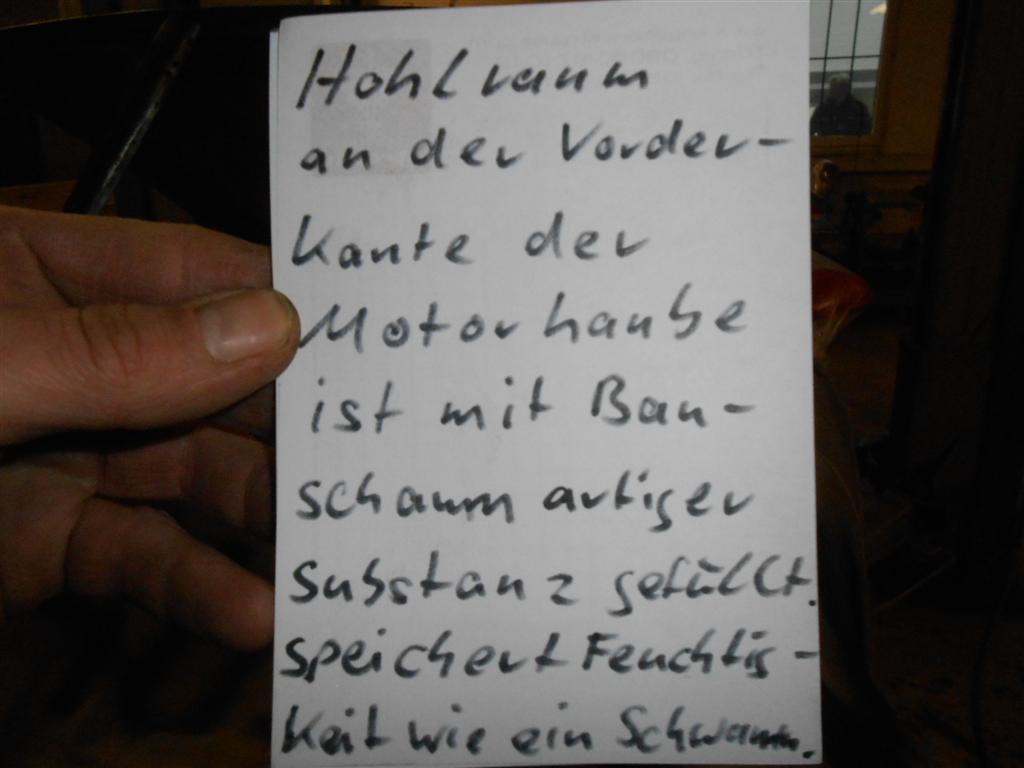 Hohlraum
an der Vorder-
Kante der
Motorhaube
ist mit Bau-
schaum artiger
Substanz gefüllt.
speichert Feuchtig-
Keit wie ein Schwamm.